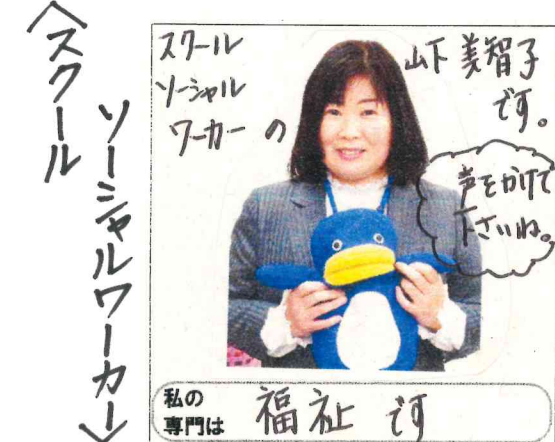 〈スクール
ソーシャルワーカー〉
スクール
ソーシャル
ワーカー の
山下 美智子
です。
声をかけて
下さいね。
私の
専門は
福祉 です